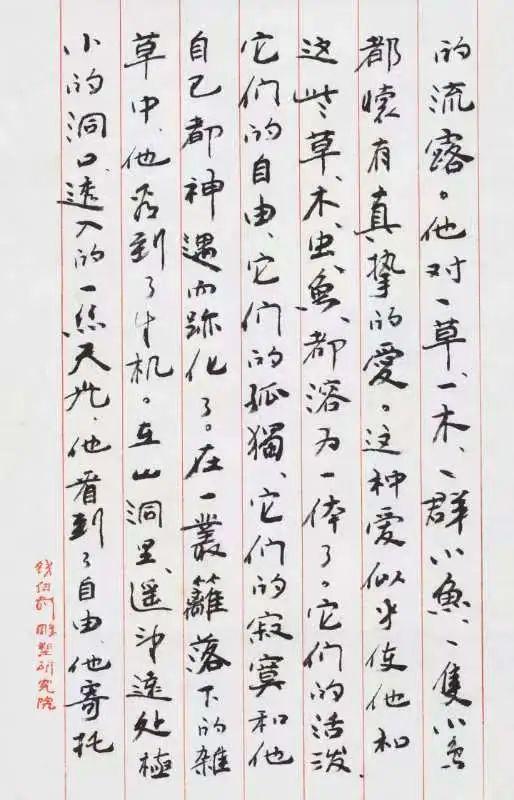 的流露。他对一草、一木、一群小魚、一隻小鳥
都懷有真摯的愛。这种爱似乎使他和
这些草、木、虫、魚、都溶为一体了。它们的活潑、
它们的自由、它们的孤獨、它们的寂寞和他
自己都神遇而跡化了。在一叢籬落下的雜
草中、他看到了生机。在山洞里、遥遠处極
小的洞口、透入的一絲天光、他看到了自由、他寄托
錢绍武雕塑研究院